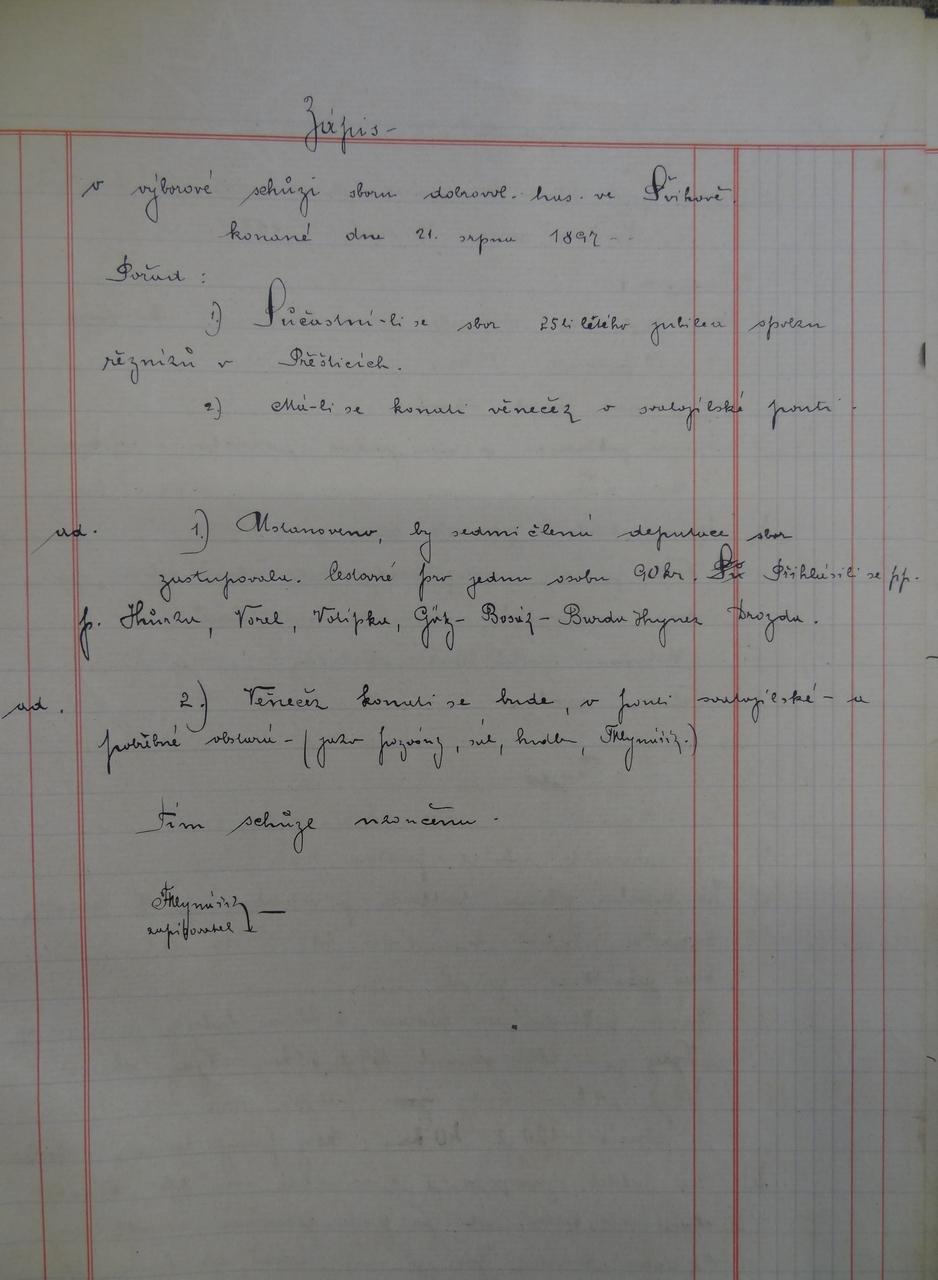 Zápis -
v výborové schůzi sboru dobrovol. has. ve Švihově.
konané dne 21. srpna 1897 - -
Pořad :
1) Súčastní-li se sbor 25ti letého jubilea spolku
řězníků v Přěšticích.
2) Má-li se konati věneček v svatojilské pouti -
ad. 1.) Ustanoveno, by sedmičlená deputace sbor
zastupovala. Cestovné pro jednu osobu 90 kr. Přihlásili se pp.
p. Hůrka, Vorel, Volípka, Göz - Bosák - Burda Hynek Drozda.
ad. 2.) Věneček konati se bude, v pouti svatojilské - a
potřebné obstará - (jako pozvány, sál, hudba, Mlynářík.)
Tím schůze skončena -
Mlynářík
zapisovatel